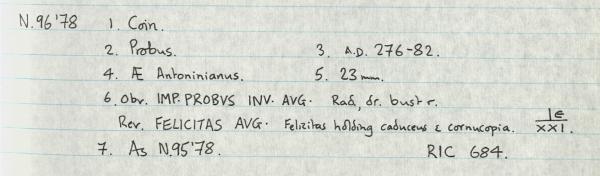 N.96'78 1. Coin.
2. Probus. 3. A.D. 276-82.
4. Æ Antoninianus. 5. 23mm.
6. Obv. IMP. PROBVS INV. AVG. Rad, dr. bust r.
Rev. FELICITAS AVG. Felizitas holding caduceus & cornucopia. | E
XXI.
7. As N.95'78. RIC 684.